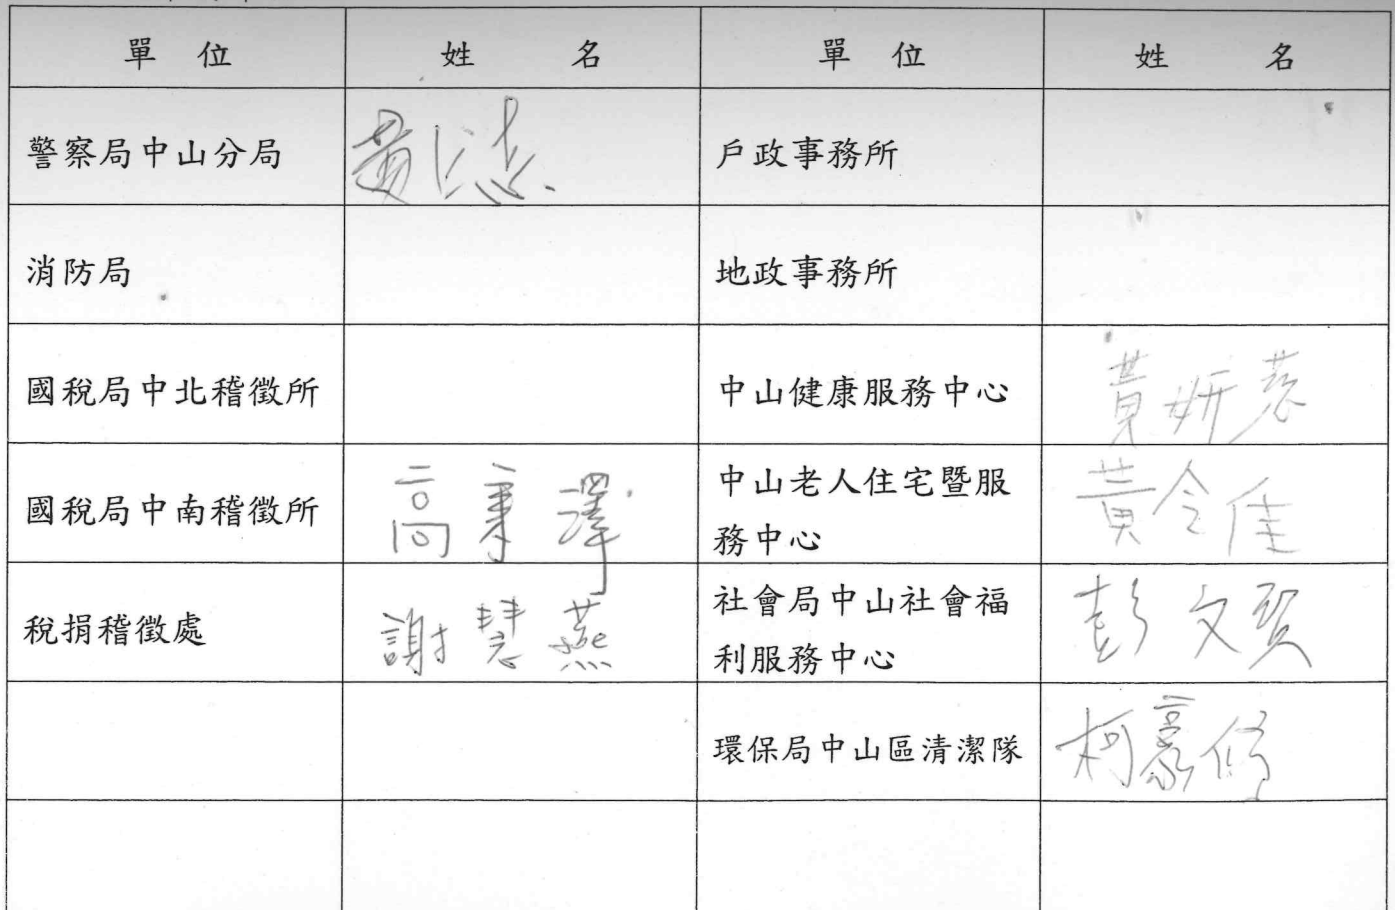 單位 姓名 單位 姓名
警察局中山分局 黃 戶政事務所
消防局 地政事務所
國稅局中北稽徵所 中山健康服務中心 黃妍慈
國稅局中南稽徵所 高秉澤 中山老人住宅暨服
務中心 黃令佳
稅捐稽徵處 謝慧燕 社會局中山社會福
利服務中心 彭文賢
環保局中山區清潔隊 柯豪修